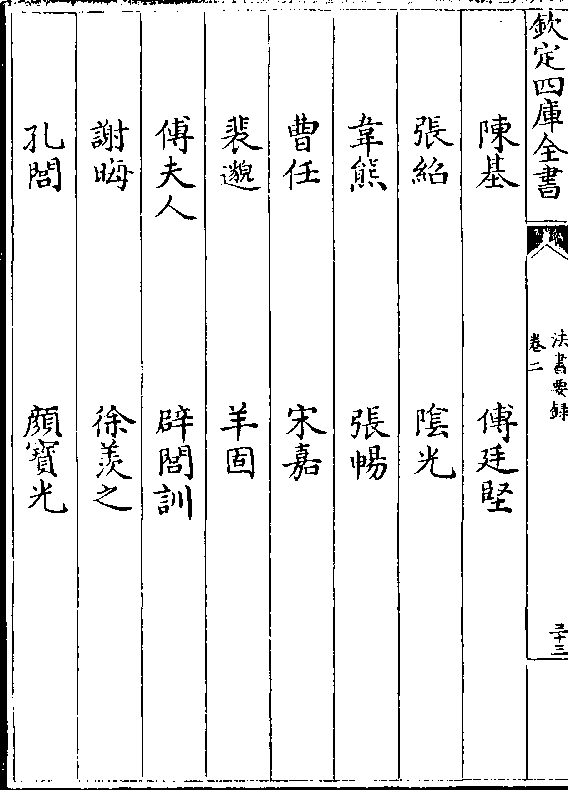 欽定四庫全書
法書要録
卷二
三十三
陳基　傅廷堅
張紹　陰光
韋熊　張暢
曹任　宋嘉
裴邈　羊固
傅夫人　辟閭訓
謝晦　徐羨之
孔閭　顔寶光